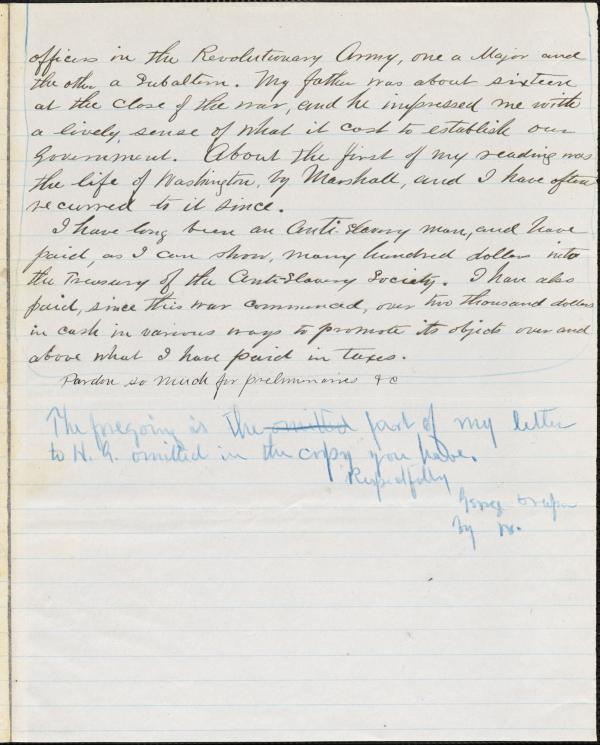 officers in the Revolutionary Army, one a Major and
the other a Subaltern. My father was about sixteen
at the close of the war, and he impressed me with
a lively sense of what it cost to establish our
Government. About the first of my reading was
the life of Washington, by Marshall, and I have often
recurred to it since.
I have long been an Anti-Slavery man, and have
paid, as I can show, many hundred dollars into
the Treasury of the Anti-Slavery Society. I have also
paid, since this war commenced, over two thousand dollars
in cash in various ways to promote its objects over and
above what I have paid in taxes.
Pardon so much for preliminaries &c
The foregoing is the omitted part of my letter
to H. G. omitted in the copy you have.
Respectfully
George Draper
by